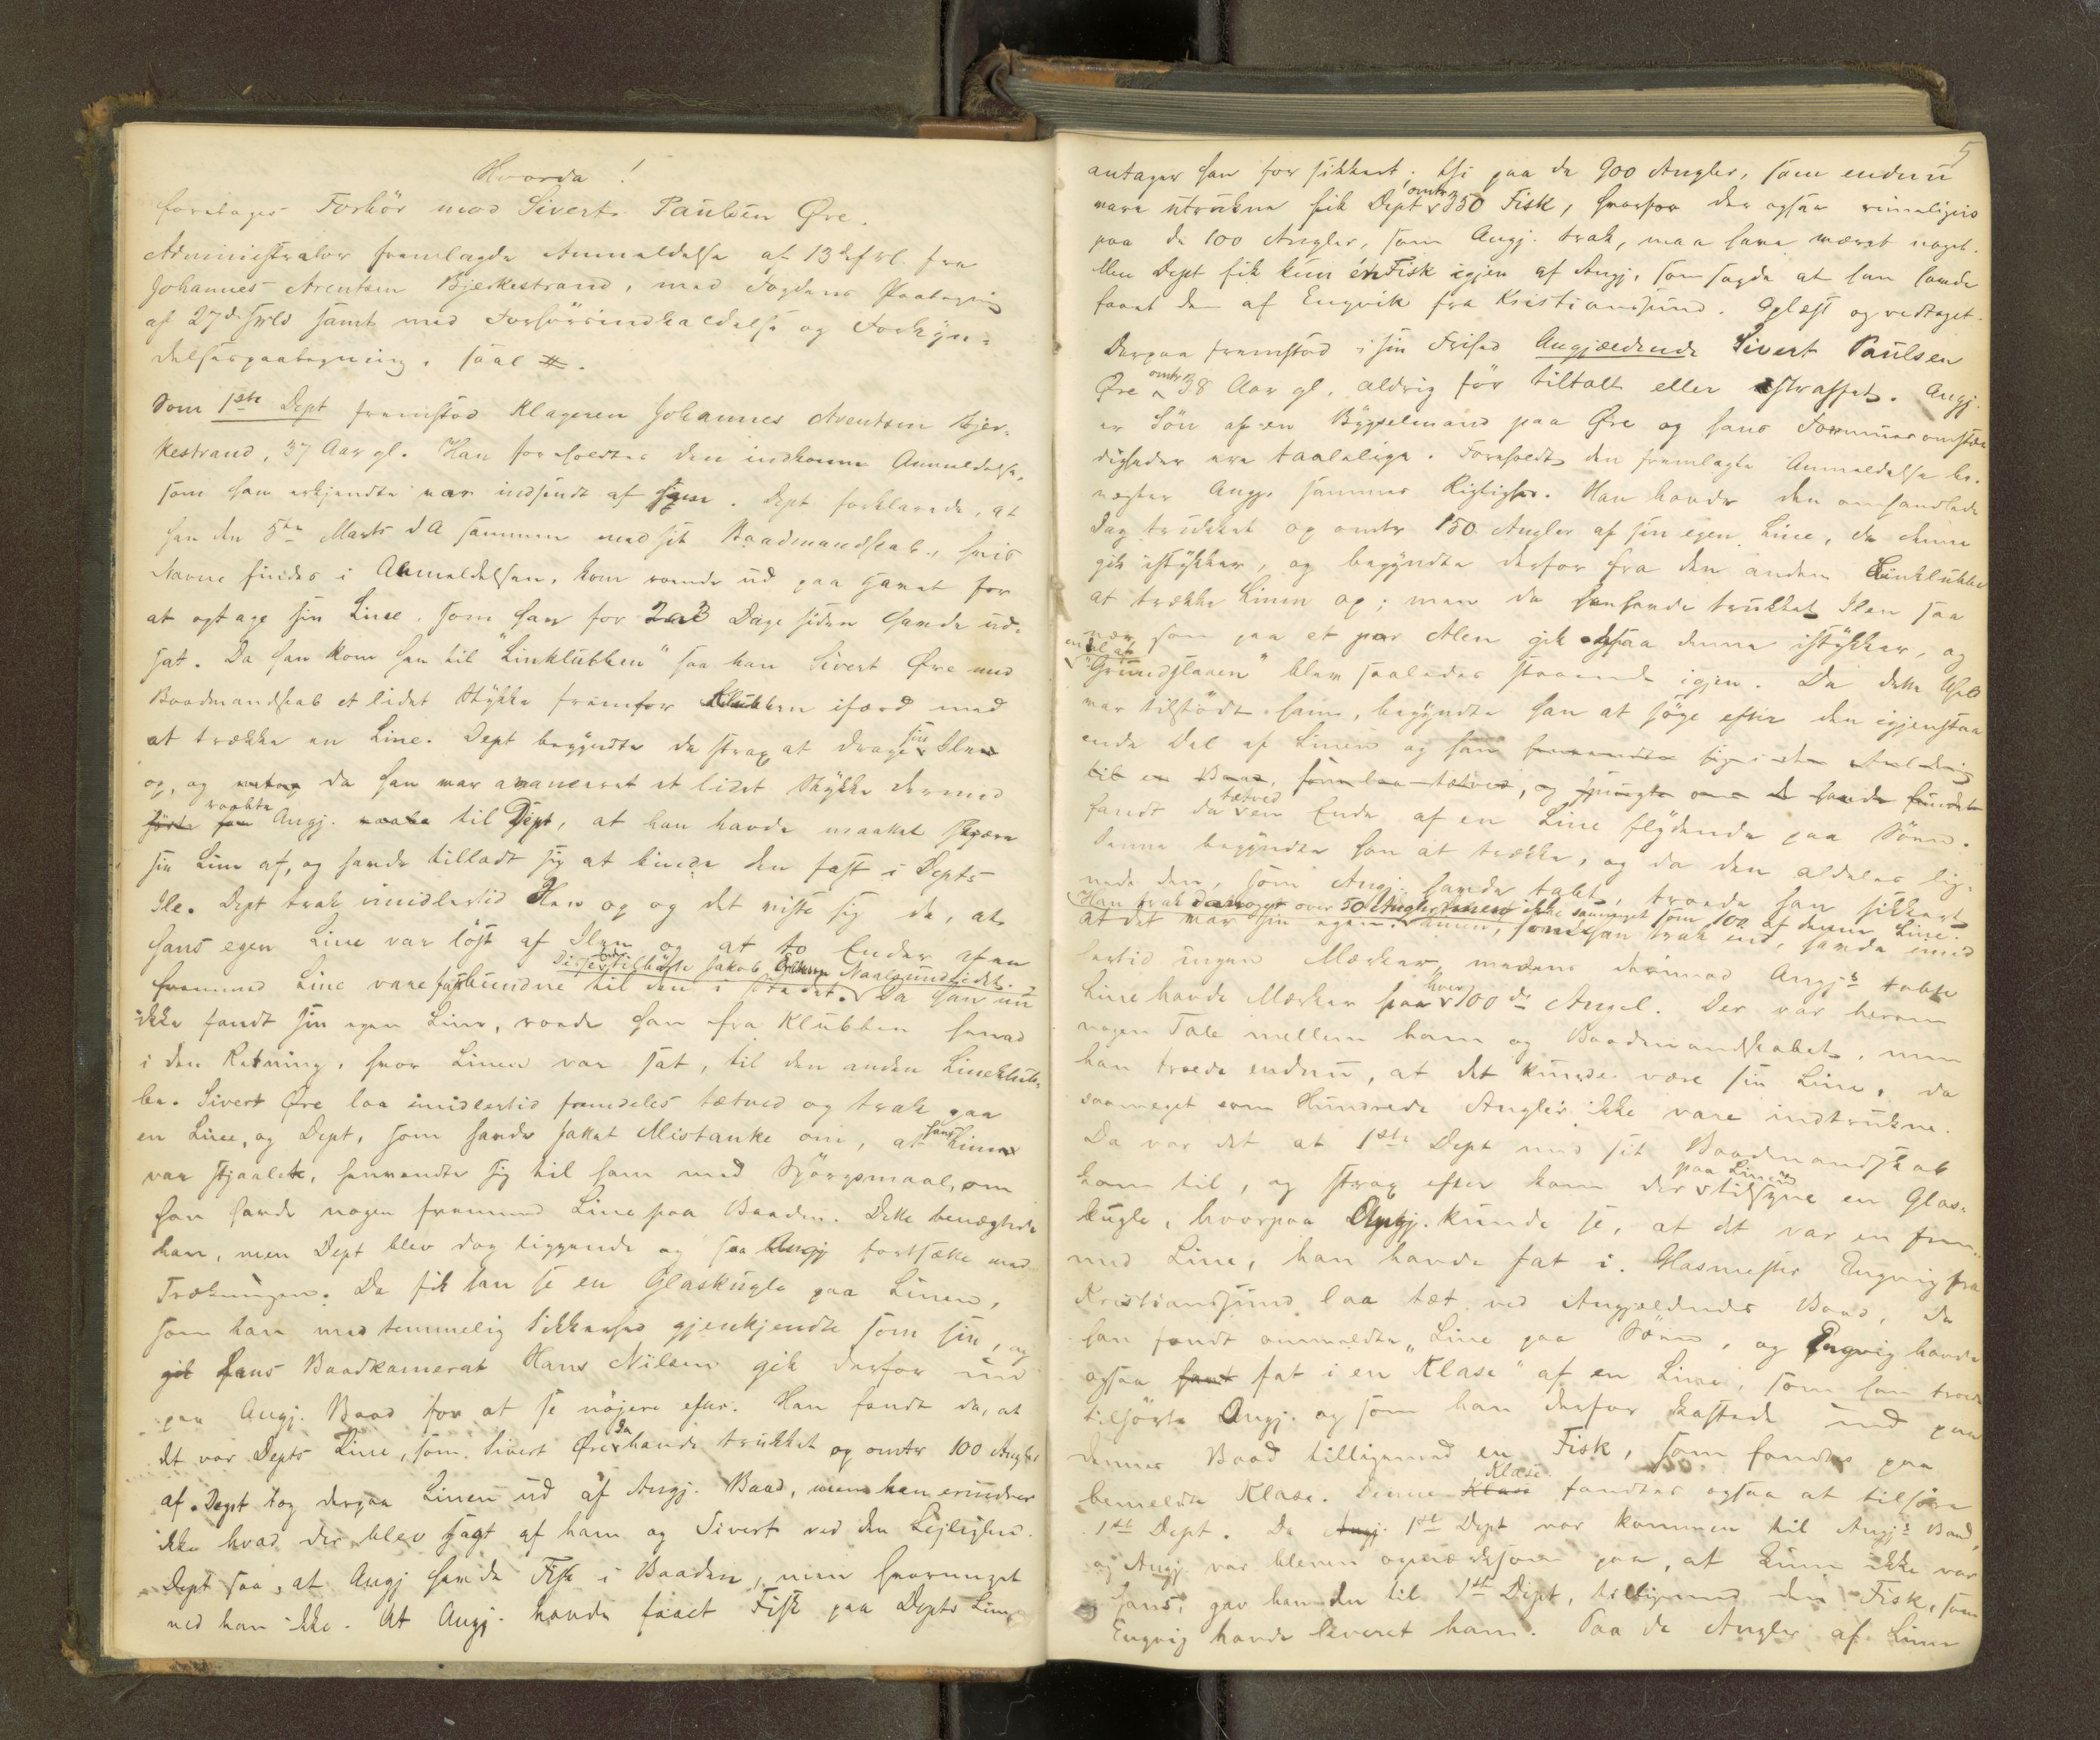 Hvorda!
foretoges Forhör mod Sivert Paulsen Øre.
Administrator fremlagde Anmeldelse af 13de f.M. fra
Johannes Arentsen Bjerkestrand, med Fogdens Paategning
af 27de samt med Forhörsindkaldelse og Forkyn-
delsespaategning, saal #.
Som 1ste Dept fremstod Klageren Johannes Arentsen Bjer-
kestrand, 37 Aar gl. Han foreholdtes den indkomne Anmeldelse,
som han erkjendte var indsendt af ham. Dept forklarede, at
han den 5te Marts d A sammen med sit Baadmandskab, hvis
Navne findes i Anmeldelsen, kom roende ud paa Havet for
at optage sin Line, som han for 2 a 3 Dage siden havde ud-
sat. Da han kom hen til "Linklubben" saa han Sivert Øre med
Baadmandskab et lidet Stykke fremfor Klubben ifærd med
at trække en Line. Dept begyndte da strax at drage sin Ile
op, og da han var avanceret et lidet Stykke dermed
raabte Angj. til Dept, at han havde maattet skjære
sin Line af, og havde tilladt sig at binde den fast i Depts
Ile. Dept trak imidlertid Ilen op og det viste sig da, at
hans egen Line var löst af Ilen og at to Ender af en
fremmed Line vare fastbundne til den i Stedet. Disse Ender tilhörte Jakob Naalsundlidet. Da han nu
ikke fandt sin egen Line, roede han fra Klubben henad
i den Retning, hvor Linen var sat, til den anden Lineklub-
be. Sivert Øre laa imidlertid fremdeles tætved og trak paa
en Line, og Dept, som havde fattet Mistanke om, at hans Line
var stjaalet, henvendte sig til ham med Spörgsmaal, om
han havde nogen fremmed Line paa Baaden. Dette benægtede
han, men Dept blev dog liggende og saa Angj fortsætte med
Trækningen. Da fik han se en Glaskugle paa Linen,
som han med temmelig Sikkerhed gjenkjendte som sin, og
hans Baadkamerat Hans Nilsen gik derfor ind
paa Angj. Baad for at se nöjere efter. Han fandt da, at
det var Depts Line, som Sivert Øre da havde trukket og omtr 100 Angler
af. Dept tog derpaa Linen ud af Angj. Baad, men han erindrer
ikke hvad der blev sagt af ham og Sivert ved den Lejlighed.
Dept saa, at Angj havde Fisk i Baaden, men hvormeget
ved han ikke. At Angj. havde faaet Fisk paa Depts Line
5
antager han for sikkert; thi paa de 900 Angler, som endnu
vare utrukne fik Dept omtr 350 Fisk, hvorfor der ogsaa rimeligvis
paa de 100 Angler, som Angj. trak, maa have været noget.
Men Dept fik kun én Fisk igjen af Angj. som sagde at han havde
faaet den af Engvik fra Kristiansund. Oplæst og vedtaget.
Derpaa fremstod i sin Frihed Angjældende Sivert Paulsen
Øre omtr 38 Aar gl. aldrig för tiltalt eller straffet. Angj.
er Sön af en Bygselmand paa Øre og hans Formuesomstæn
digheder ere taalelige. Foreholdt den fremlagte Anmeldelse be-
nægter Angj. sammes Rigtighed. Han havde den omhandlede
Dag trukket op omtr 150 Angler af sin egen Line, da denne
gik istykker, og begyndte derfor fra den anden Linklubbe
at trække Linen op; men da han havde trukket Ilen saa
nær som paa et par Alen gik ogsaa denne istykker, og
en del af "Grundstaven" blev saaledes staaende igjen. Da dette Uheld
var tilstödt ham, begyndte han at söge efter den igjenstaa
ende Del af Linen og han henvendte sig i den Anledning
til en Baad, som laa tætved, og spurgte om de havde fundet
fandt da tætved en Ende af en Line flydende paa Söen.
Denne begyndte han at trække, og da den aldeles lig-
nede den, som Angj. havde tabt, troede han sikkert
Han trak da noget over 50 Angler men ikke saameget som 100 af denne Line.
at det var sin egen. Linen, som han trak ind, havde imid
lertid ingen Mærker, medens derimod Angj.s tabte
Line havde Mærker paa hver 100de Angel. Der var herom
nogen Tale mellem ham og Baadmandskabet, men
han troede endnu, at det kunde være sin Line, da
saameget som Hundrede Angler ikke vare indtrukne.
Da var det at 1ste Dept med sit Baadmandskab
kom til, og strax efter kom der paa Linen tilsyne en Glas-
kugle, hvorpaa Angj. kunde se, at det var en frem-
med Line, han havde fat i. Glasmester Engvig fra
Kristiansund laa tæt ved Angjældendes Baad, da
han fandt ommeldte Line paa Söen, og Engvig havde
ogsaa fat i en "Klase" af en Line, som han troede
tilhörte Angj. og som han derfor kastede ind paa
dennes Baad tilligemed en Fisk, som fandtes paa
bemeldte Klase. Denne Klase fandtes ogsaa at tilhöre
1ste Dept. Da Angj. 1ste Dept var kommen til Angj.s Baad,
og Angj. var bleven opmærksom paa, at Linen ikke var
hans, gav han den til 1ste Dept, tilligemed den Fisk, som
Engvig havde leveret ham. Paa de Angler af Linen